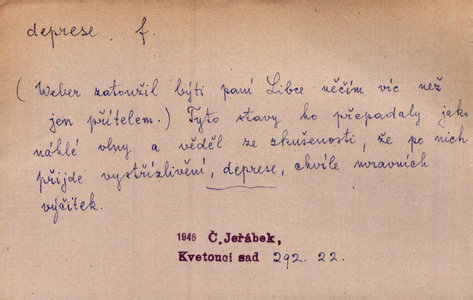 deprese f.
( Weber zatoužil býti paní Libce něčím víc než
jen přítelem.) Tyto stavy ho přepadaly jako
náhlé vlny a věděl ze zkušenosti, že po nich
přijde vystřízlivění, deprese, chvíle mravních
výčitek.
1946 Č. Jeřábek,
Kvetoucí sad 292. 22.